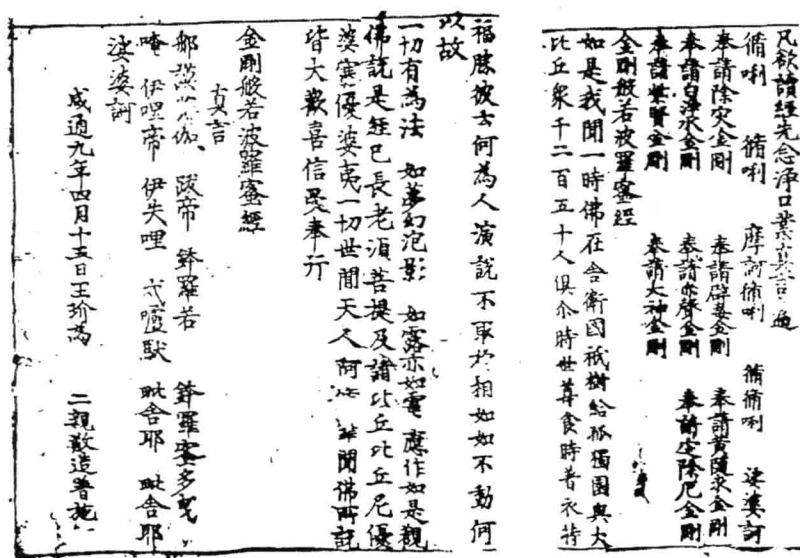 凡欲讀經先念淨口業真言遍
脩唎 脩唎 摩訶脩唎 脩脩唎 娑婆訶
奉請除灾金剛 奉請辟毒金剛 奉請黄隨求金剛
奉請白淨水金剛 奉請赤聲金剛 奉請定除厄金剛
奉請紫賢金剛 奉請大神金剛
金剛般若波羅蜜經
如是我聞一時佛在舍衛國祇樹給孤獨園與大
比丘衆千二百五十人俱尒時世尊食時著衣持
福勝彼云何為人演說不取於相如如不動何
以故
一切有為法 如夢幻泡影 如露亦如電 應作如是觀
佛說是經已長老須菩提及諸比丘比丘尼優
婆塞優婆夷一切世間天人阿 聞佛所說
皆大歡喜信受奉行
金剛般若波羅蜜經
真言
那謨 伽 跋帝 鉢羅若 鉢羅蜜多曵
唵 伊哩帝 伊失哩 戍嚧馱 毗舍耶 毗舍耶
娑婆訶
咸通九年四月十五日王玠為 二親敬造普施